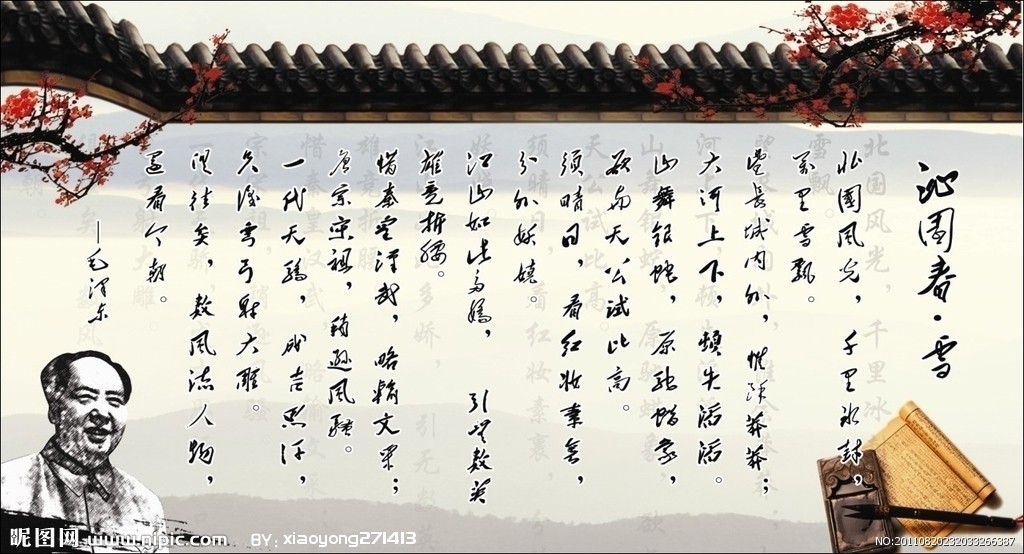 沁园春·雪
北国风光，千里冰封，
万里雪飘。
望长城内外，惟馀莽莽；
大河上下，顿失滔滔。
山舞银蛇，原驰蜡象，
欲与天公试比高。
须晴日，看红妆素裹，
分外妖娆。
江山如此多娇，引无数英
雄竞折腰。
惜秦皇汉武，略输文采；
唐宗宋祖，稍逊风骚。
一代天骄，成吉思汗，
只识弯弓射大雕。
俱往矣，数风流人物，
还看今朝。
—毛泽东
昵图网 www.nipic.com BY: xiaoyong271413
NO:20110820232033266387